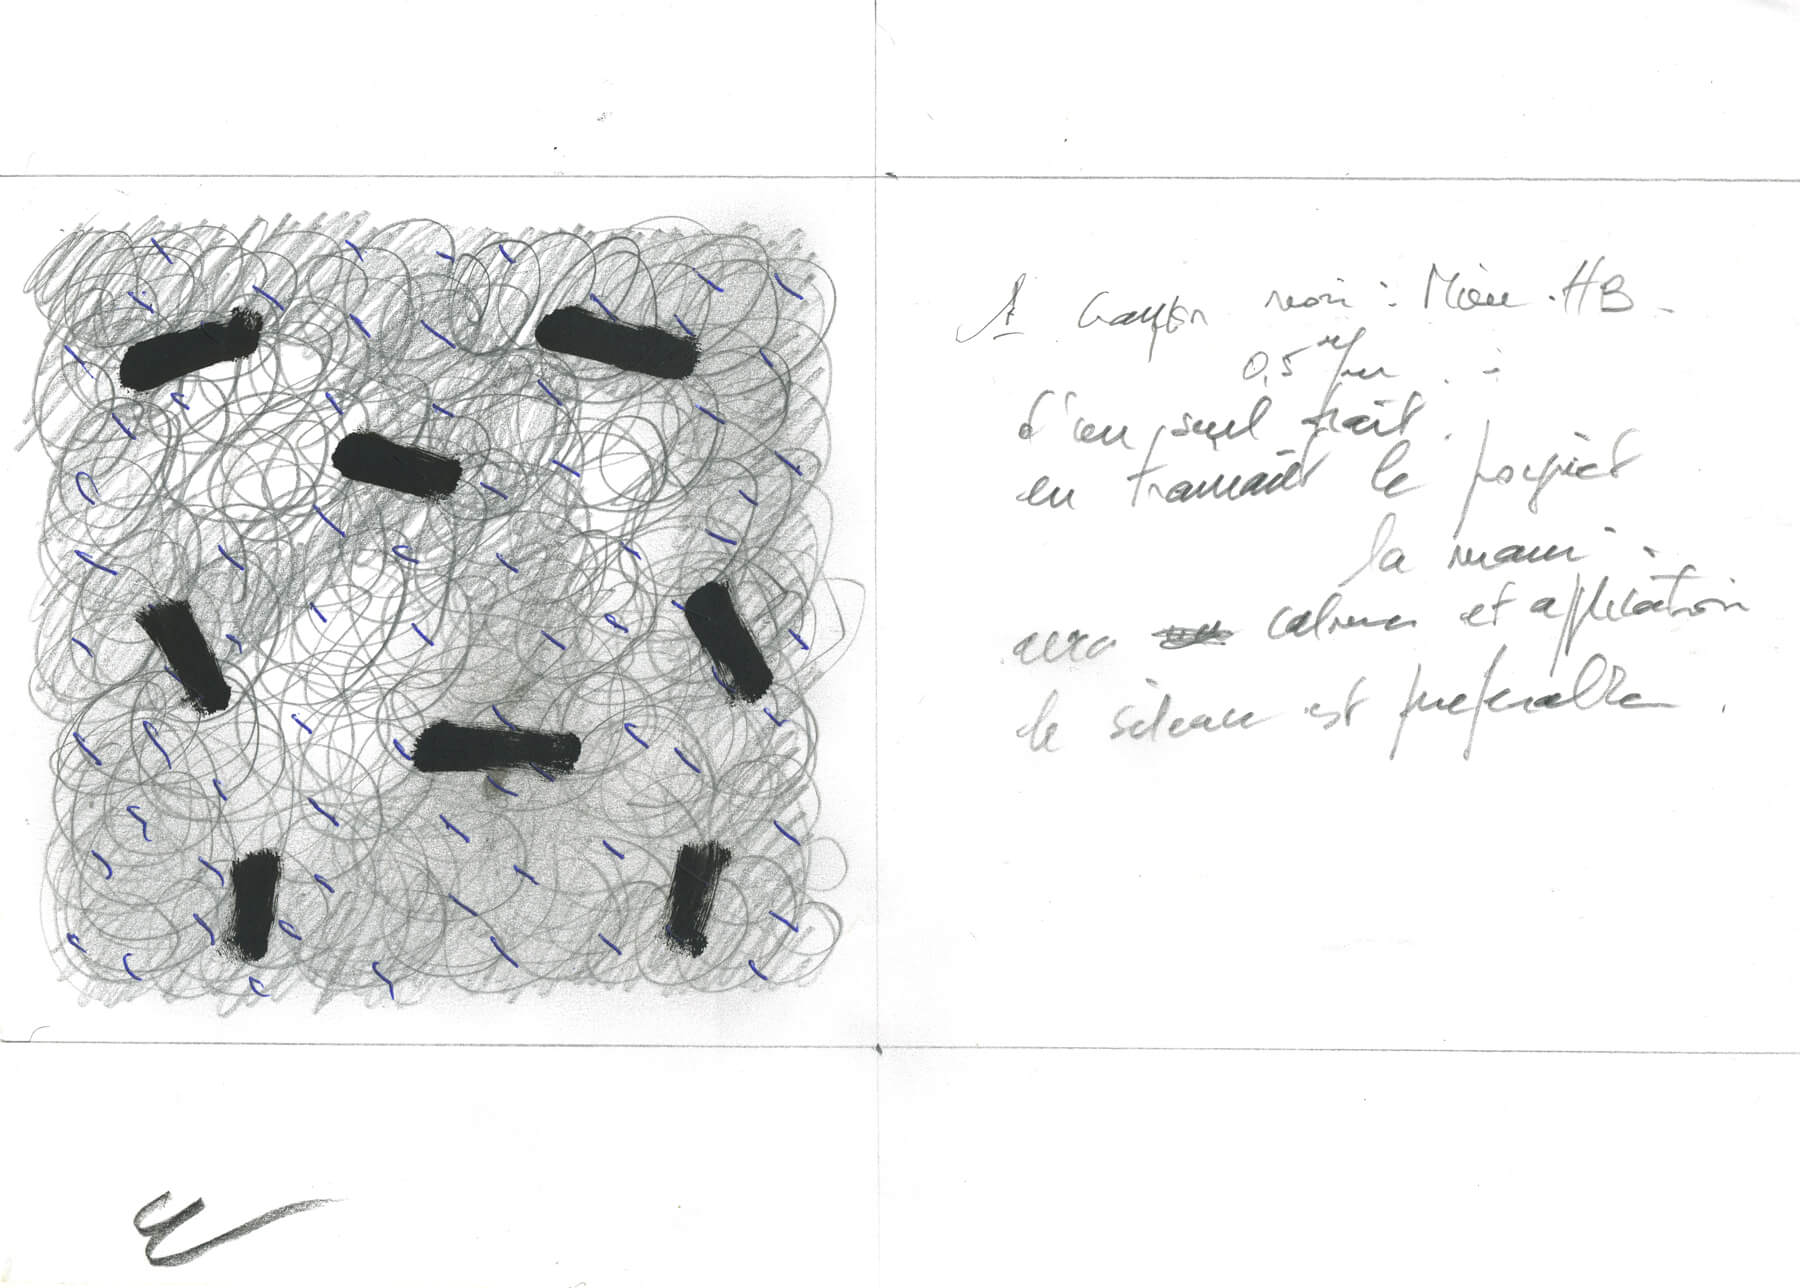 1 crayon noir : Mine . HB -
0,5
d'un seul trait .
en tramant le poignet
la main .
avec calme et application
le silence est préférable .